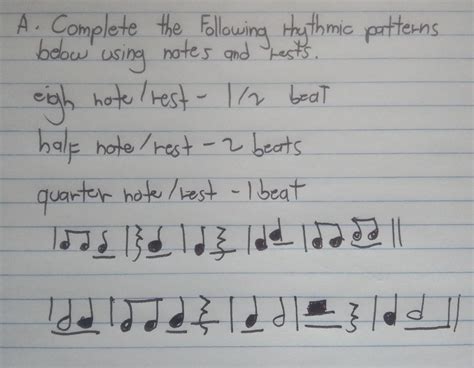 A. Complete the Following rhythmic patterns
below using notes and rests.
eigh note/rest - 1/2 beat
half note/rest - 2 beats
quarter note/rest - 1 beat